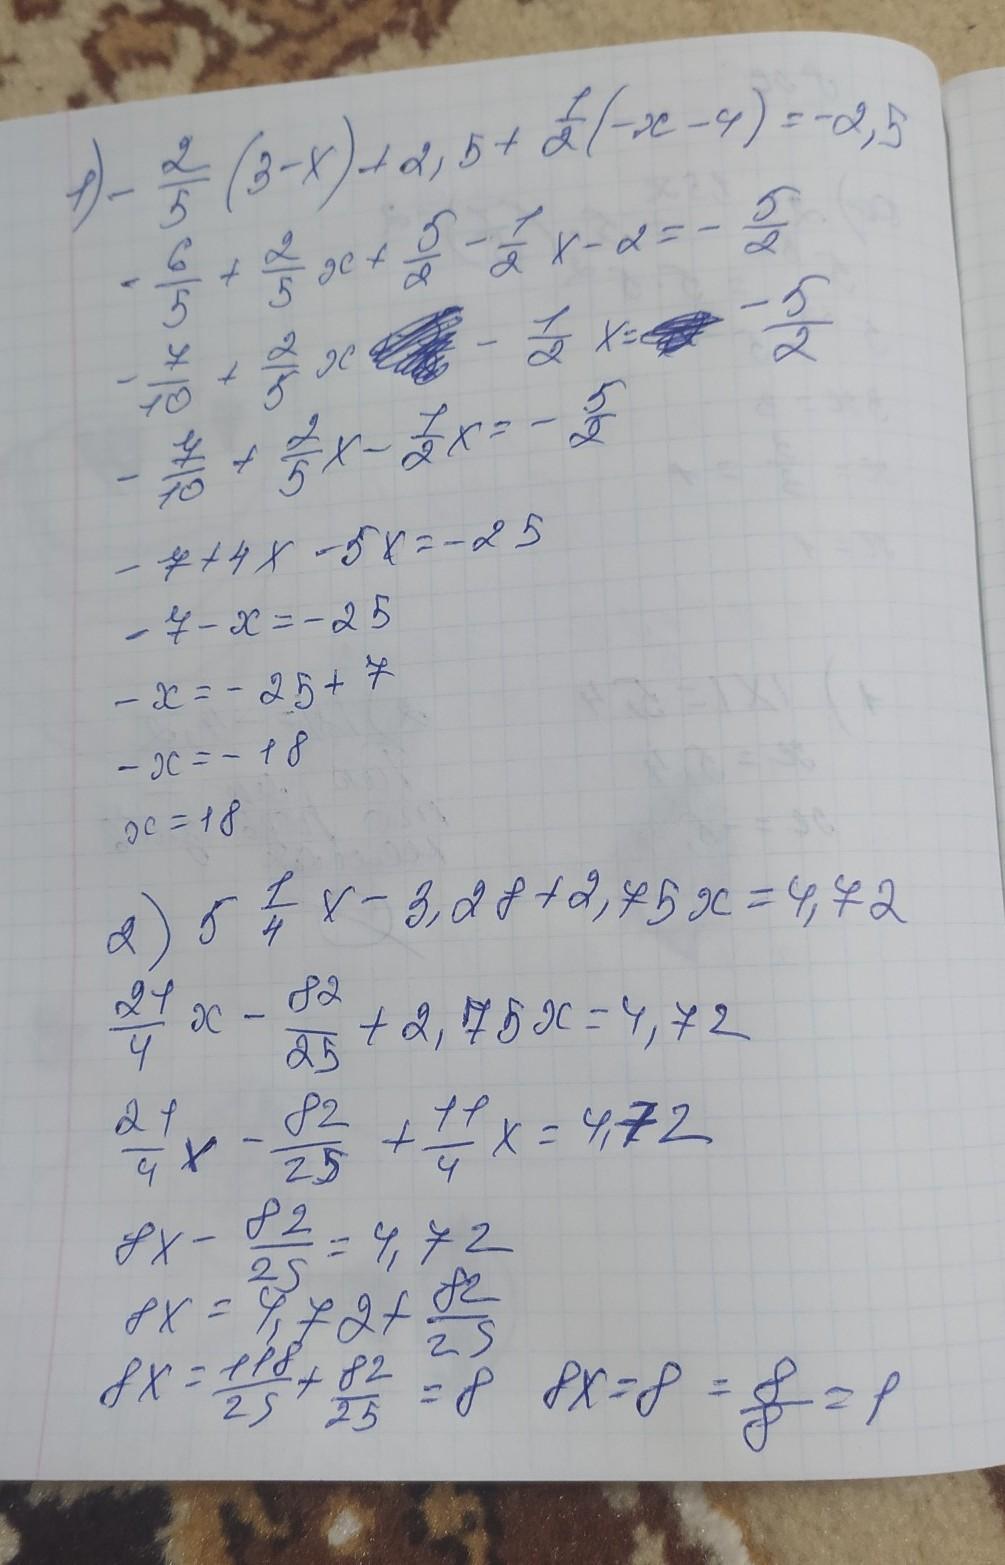 1) - 2/5 (3-x) + 2,5 + 1/2 (-x-4) = -2,5
- 6/5 + 2/5 x + 5/2 - 1/2 x - 2 = - 5/2
- 7/10 + 2/5 x - 1/2 x = - 5/2
- 7/10 + 2/5 x - 1/2 x = - 5/2
-7+4x-5x=-25
-7-x=-25
-x=-25+7
-x=-18
x=18
2) 5 1/4 x - 3,28 + 2,75x = 4,72
21/4 x - 82/25 + 2,75x = 4,72
21/4 x - 82/25 + 11/4 x = 4,72
8x - 82/25 = 4,72
8x = 4,72 + 82/25
8x = 118/25 + 82/25 = 8 8x = 8 = 8/8 = 1